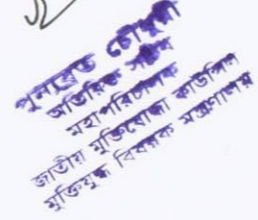 পুনরব্রত চৌধুরী
অতিরিক্ত সচিব
মহাপরিচালক
জাতীয় মুক্তিযোদ্ধা কাউন্সিল
মুক্তিযুদ্ধ বিষয়ক মন্ত্রণালয়